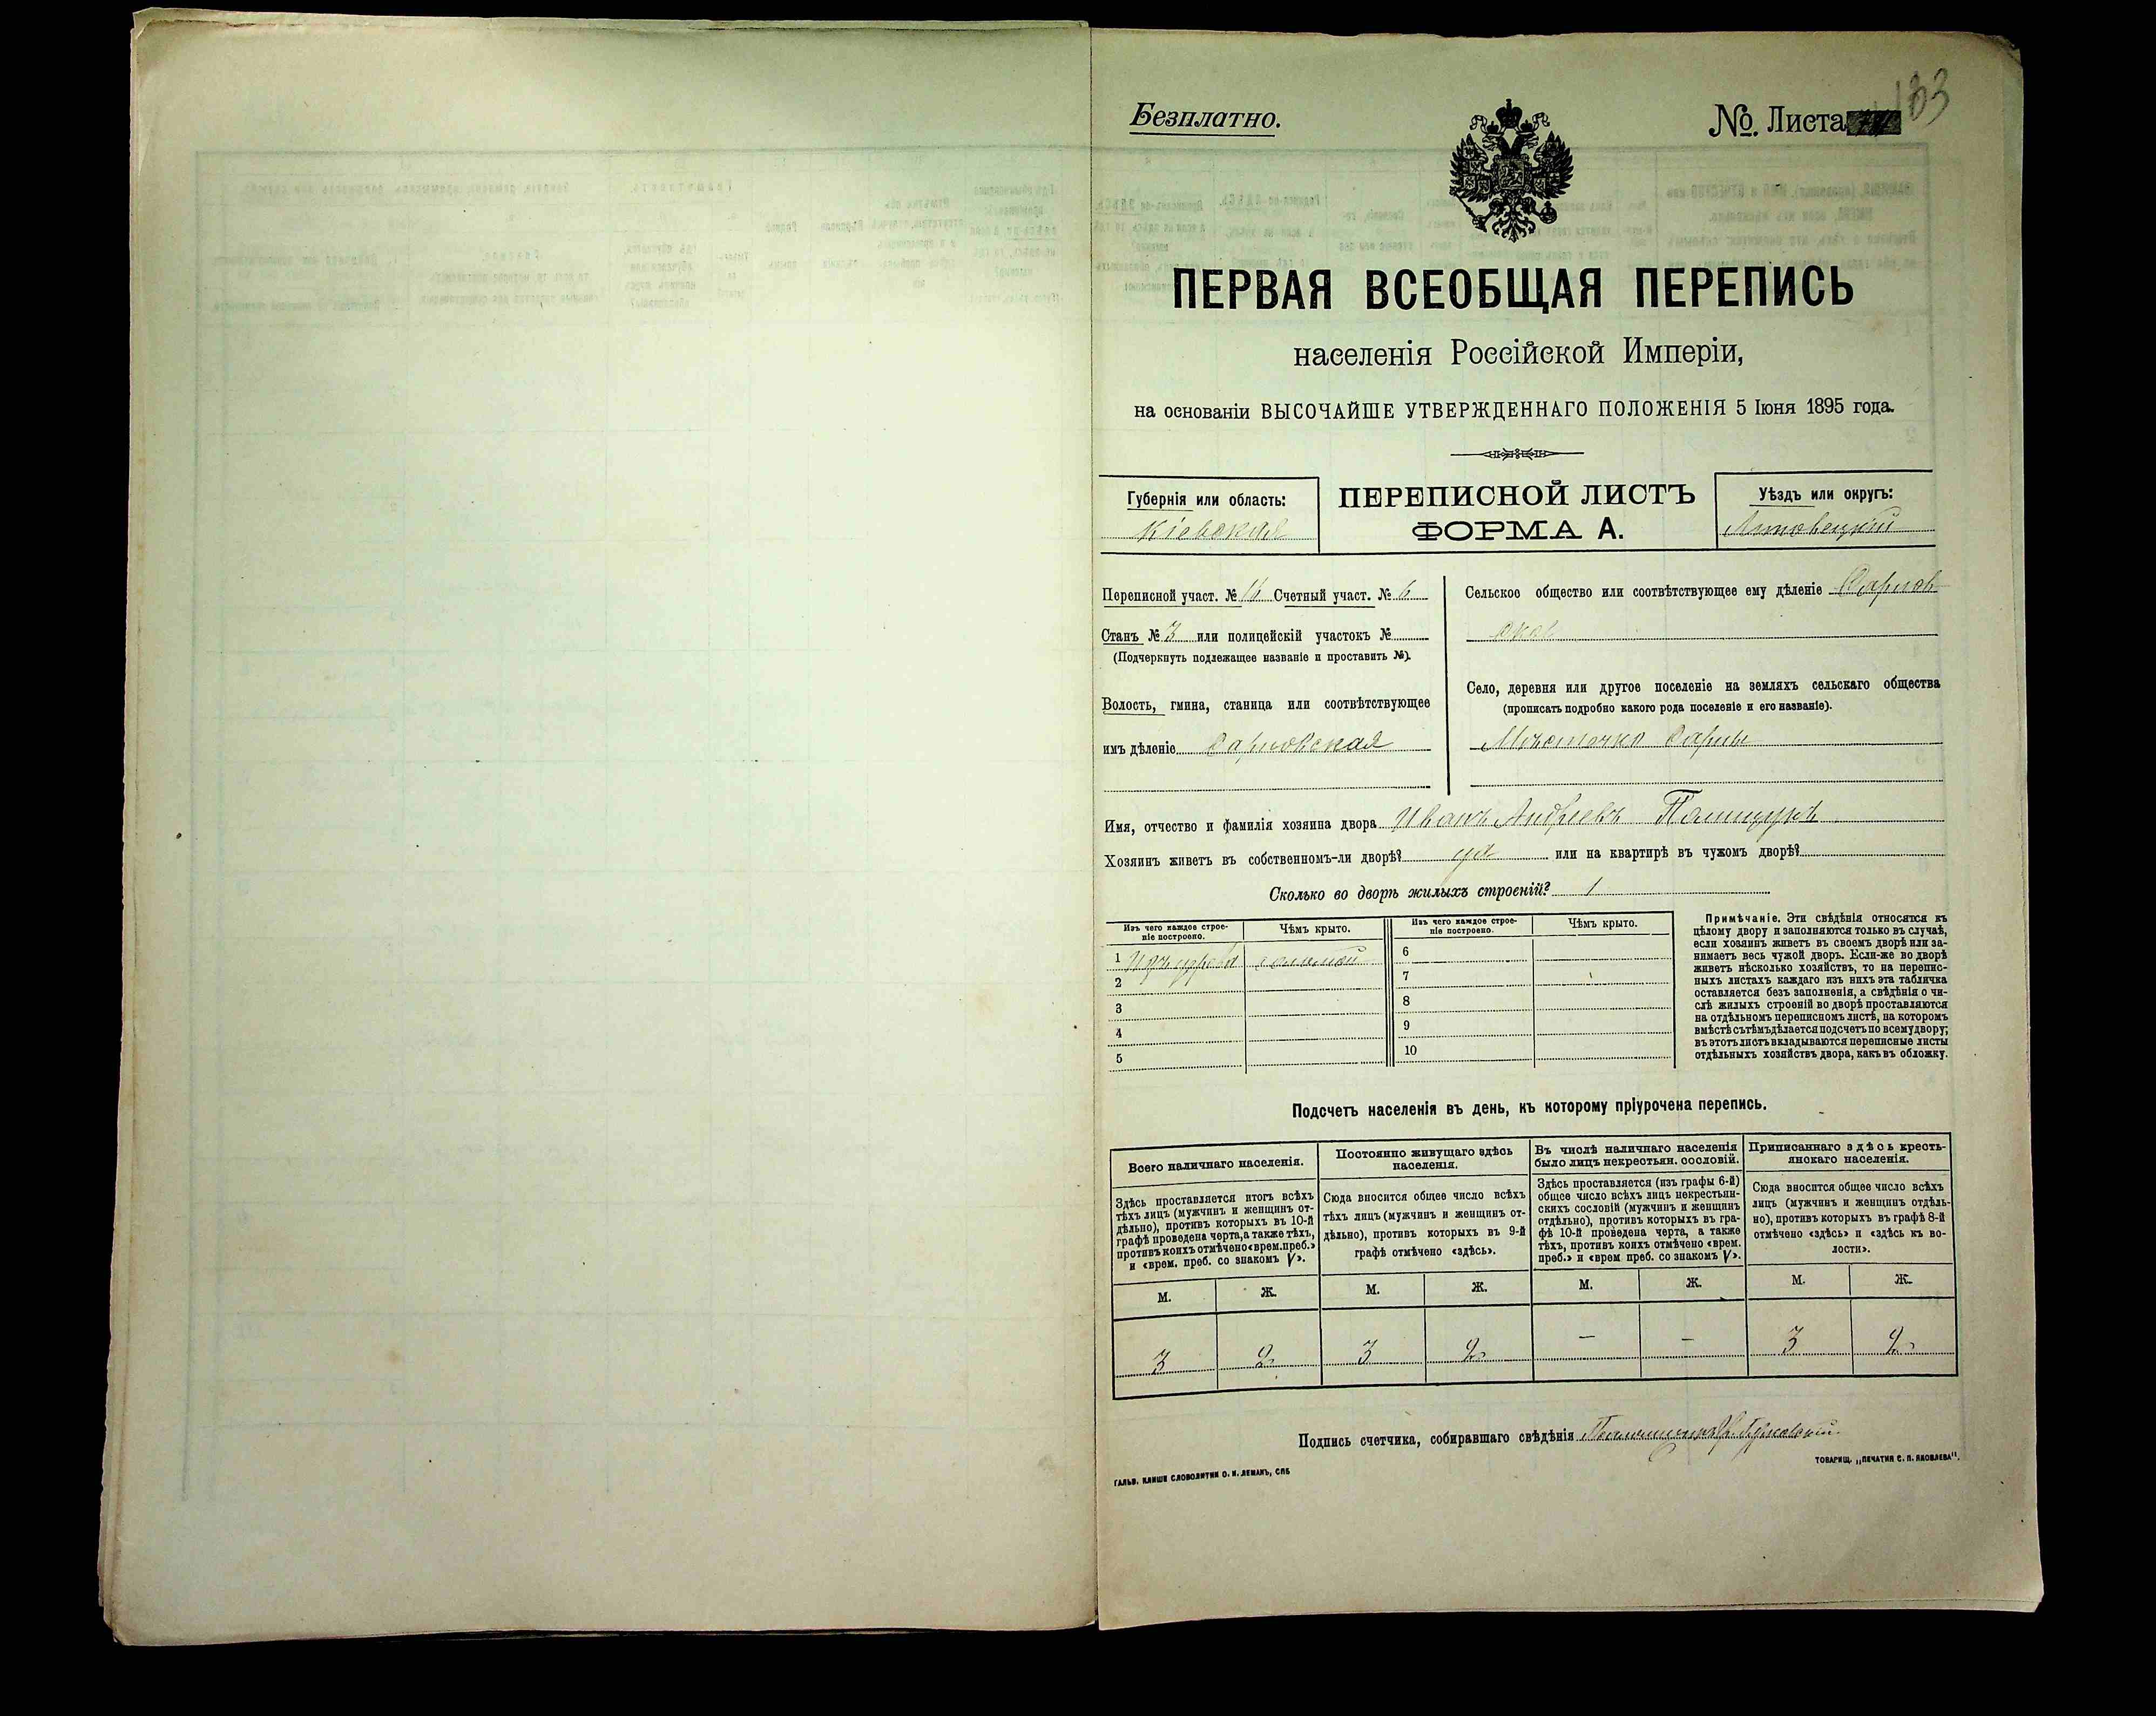 Безплатно.
№ Листа
133
ПЕРВАЯ ВСЕОБЩАЯ ПЕРЕПИСЬ
населенія Россійской Имперіи,
на основаніи ВЫСОЧАЙШЕ УТВЕРЖДЕННАГО ПОЛОЖЕНІЯ 5 Іюня 1895 года.
Губернія или область:
Кіевская
ПЕРЕПИСНОЙ ЛИСТЪ
ФОРМА А.
Уѣздъ или округъ:
Липовецкій
Переписной участ. № 16 Счетный участ. № 6
Станъ № 3 или полицейскій участокъ №
(Подчеркнуть подлежащее названіе и проставить №).
Волость, гмина, станица или соотвѣтствующее
имъ дѣленіе
Сельское общество или соотвѣтствующее ему дѣленіе
Село, деревня или другое поселеніе на земляхъ сельскаго общества
(прописать подробно какого рода поселеніе и его названіе).
Мѣстечко
Имя, отчество и фамилія хозяина двора Иванъ Андреевъ
Хозяинъ живетъ въ собственномъ-ли дворѣ? да или на квартирѣ въ чужомъ дворѣ?
Сколько во дворѣ жилыхъ строеній? 1
Изъ чего каждое строе-
ніе построено.
Чѣмъ крыто.
Изъ чего каждое строе-
ніе построено.
Чѣмъ крыто.
1 Изъ дерева соломой
2
3
4
5
6
7
8
9
10
Примѣчаніе. Эти свѣдѣнія относятся къ
цѣлому двору и заполняются только въ случаѣ,
если хозяинъ живетъ въ своемъ дворѣ или за-
нимаетъ весь чужой дворъ. Если-же во дворѣ
живетъ нѣсколько хозяйствъ, то на перепис-
ныхъ листахъ каждаго изъ нихъ эта табличка
оставляется безъ заполненія, а свѣдѣнія о чи-
слѣ жилыхъ строеній во дворѣ проставляются
на отдѣльномъ переписномъ листѣ, на которомъ
вмѣстѣ съ тѣмъ дѣлается подсчетъ по всему двору;
въ этотъ листъ вкладываются переписные листы
отдѣльныхъ хозяйствъ двора, какъ въ обложку.
Подсчетъ населенія въ день, къ которому пріурочена перепись.
Всего наличнаго населенія.
Здѣсь проставляется итогъ всѣхъ
тѣхъ лицъ (мужчинъ и женщинъ от-
дѣльно), противъ которыхъ въ 10-й
графѣ проведена черта, а также тѣхъ,
противъ коихъ отмѣчено «врем. преб.»
и «врем. преб. со знакомъ V».
Постоянно живущаго здѣсь
населенія.
Сюда вносится общее число всѣхъ
тѣхъ лицъ (мужчинъ и женщинъ от-
дѣльно), противъ которыхъ въ 9-й
графѣ отмѣчено «здѣсь».
Въ числѣ наличнаго населенія
было лицъ некрестьян. сословій.
Здѣсь проставляется (изъ графы 6-й)
общее число всѣхъ лицъ некрестьян-
скихъ сословій (мужчинъ и женщинъ
отдѣльно), противъ которыхъ въ гра-
фѣ 10-й проведена черта, а также
тѣхъ, противъ коихъ отмѣчено «врем.
преб.» и «врем преб. со знакомъ V».
Приписаннаго здѣсь кресть-
янскаго населенія.
Сюда вносится общее число всѣхъ
лицъ (мужчинъ и женщинъ отдѣль-
но), противъ которыхъ въ графѣ 8-й
отмѣчено «здѣсь» и «здѣсь къ во-
лости».
М. Ж. М. Ж. М. Ж. М. Ж.
3 2 3 2 — — 3 2
Подпись счетчика, собиравшаго свѣдѣнія
ГАЛЬВ. КЛИШЕ СЛОВОЛИТНИ О. И. ЛЕМАНЪ, СПБ
ТОВАРИЩ. „ПЕЧАТНЯ С. П. ЯКОВЛЕВА".